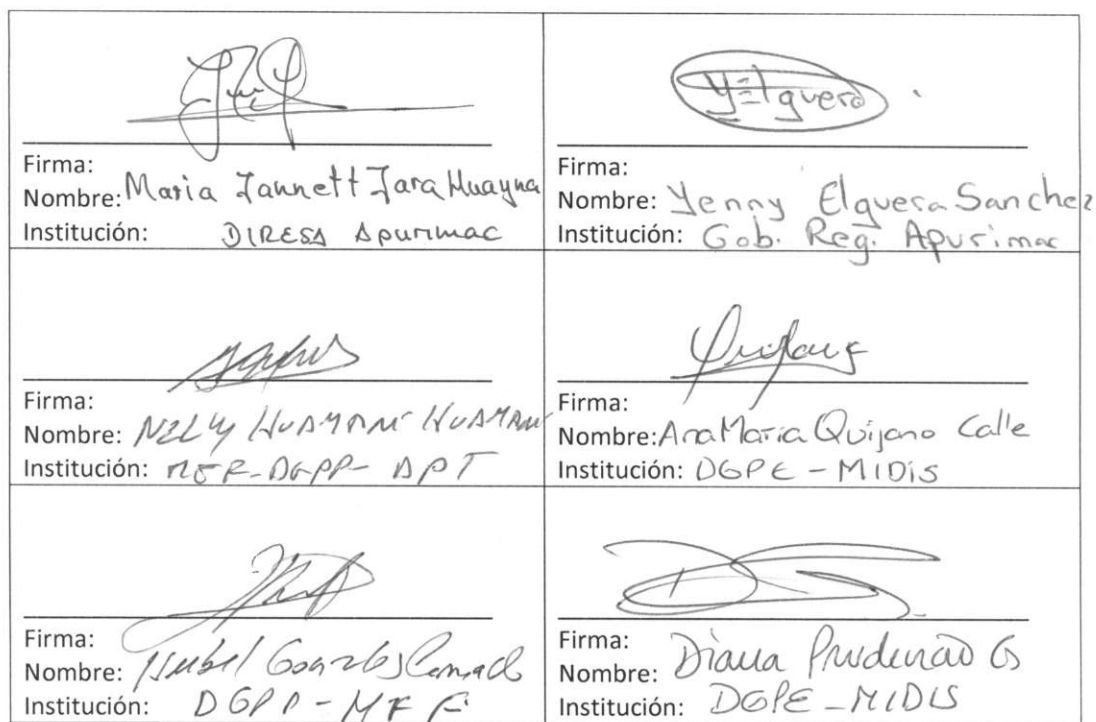 YElguera
Firma:
Nombre: Maria Jannett Jara Huayna
Institución: DIRESA Apurimac
Firma:
Nombre: Yenny Elguera Sanchez
Institución: Gob. Reg. Apurimac
Firma:
Nombre: NELLY HUAMANÍ HUAMANÍ
Institución: MEF-DGPP- APT
Firma:
Nombre: Ana Maria Quijano Calle
Institución: DGPE - MIDIS
Firma:
Nombre: Isabel Gonzales
Institución: DGPP - MEF
Firma:
Nombre: Diana Prudencio G
Institución: DGPE - MIDIS